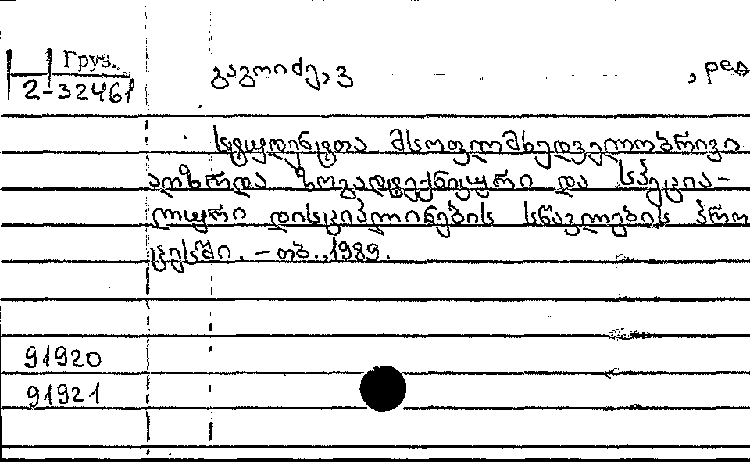 Груз.
2-32461
გაგოიძე, ვ , ред
სტუდენტთა მსოფლმხედველობრივი
აღზრდა ზოგადტექნიკური და სპეცია-
ლური დისციპლინების სწავლების პრო
ცესში. – თბ., 1989.
91920
91921